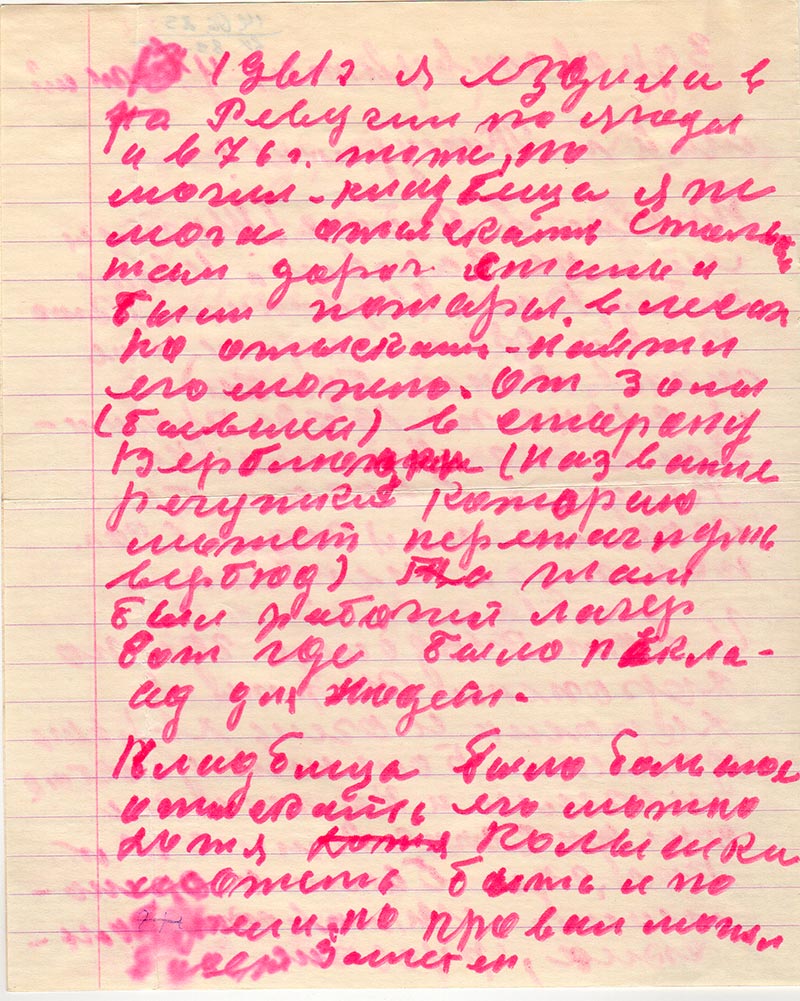 1961г я лездила в
на Ревучии по ягоды
и в 76 г. тоже, но
могил-кладбища я не
мога отыскать сталы
там дорог стали и
были пожары в лесах
но отыскать-найти
его можно. От Зоны
(бывшей) в сторону
(название
речушки которую
может перешагнуть
верблюд) там
был рабочий лагер
вот где было
ад для людей.
Кладбища было большое
отыскать его можно
хотя колышки
может быть и по
ели, но провал могил
заметен